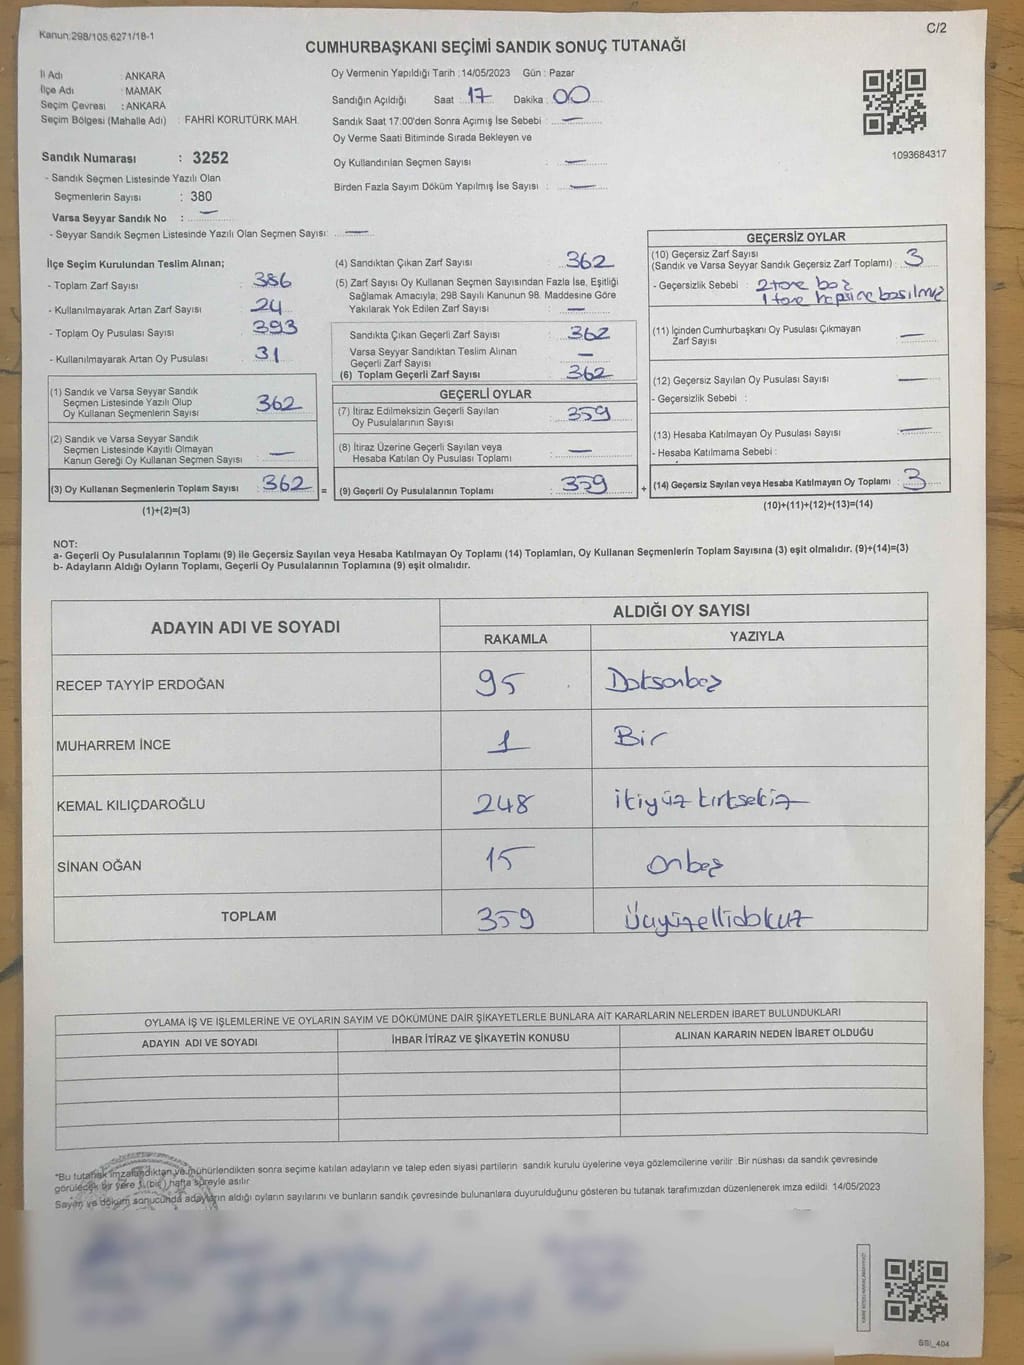 Kanun:298/105:6271/18-1
C/2
CUMHURBAŞKANI SEÇİMİ SANDIK SONUÇ TUTANAĞI
İl Adı : ANKARA
İlçe Adı : MAMAK
Seçim Çevresi : ANKARA
Seçim Bölgesi (Mahalle Adı) : FAHRİ KORUTÜRK MAH.
Sandık Numarası : 3252
- Sandık Seçmen Listesinde Yazılı Olan
Seçmenlerin Sayısı : 380
Varsa Seyyar Sandık No : —
- Seyyar Sandık Seçmen Listesinde Yazılı Olan Seçmen Sayısı: —
Oy Vermenin Yapıldığı Tarih :14/05/2023 Gün : Pazar
Sandığın Açıldığı Saat :17 Dakika :00
Sandık Saat 17:00'den Sonra Açımış İse Sebebi : —
Oy Verme Saati Bitiminde Sırada Bekleyen ve
Oy Kullandırılan Seçmen Sayısı : —
Birden Fazla Sayım Döküm Yapılmış İse Sayısı : —
1093684317
İlçe Seçim Kurulundan Teslim Alınan;
- Toplam Zarf Sayısı : 386
- Kullanılmayarak Artan Zarf Sayısı : 24
- Toplam Oy Pusulası Sayısı : 393
- Kullanılmayarak Artan Oy Pusulası : 31
(1) Sandık ve Varsa Seyyar Sandık
Seçmen Listesinde Yazılı Olup
Oy Kullanan Seçmenlerin Sayısı : 362
(2) Sandık ve Varsa Seyyar Sandık
Seçmen Listesinde Kayıtlı Olmayan
Kanun Gereği Oy Kullanan Seçmen Sayısı : —
(3) Oy Kullanan Seçmenlerin Toplam Sayısı : 362 =
(1)+(2)=(3)
(4) Sandıktan Çıkan Zarf Sayısı : 362
(5) Zarf Sayısı Oy Kullanan Seçmen Sayısından Fazla İse, Eşitliği
Sağlamak Amacıyla; 298 Sayılı Kanunun 98. Maddesine Göre
Yakılarak Yok Edilen Zarf Sayısı : —
Sandıkta Çıkan Geçerli Zarf Sayısı : 362
Varsa Seyyar Sandıktan Teslim Alınan
Geçerli Zarf Sayısı : —
(6) Toplam Geçerli Zarf Sayısı : 362
GEÇERLİ OYLAR
(7) İtiraz Edilmeksizin Geçerli Sayılan
Oy Pusulalarının Sayısı : 359
(8) İtiraz Üzerine Geçerli Sayılan veya
Hesaba Katılan Oy Pusulası Toplamı : —
(9) Geçerli Oy Pusulalarının Toplamı : 359 +
GEÇERSİZ OYLAR
(10) Geçersiz Zarf Sayısı
(Sandık ve Varsa Seyyar Sandık Geçersiz Zarf Toplamı) : 3
- Geçersizlik Sebebi : 2 tane boş
1 tane hepsine basılmış
(11) İçinden Cumhurbaşkanı Oy Pusulası Çıkmayan
Zarf Sayısı : —
(12) Geçersiz Sayılan Oy Pusulası Sayısı : —
- Geçersizlik Sebebi :
(13) Hesaba Katılmayan Oy Pusulası Sayısı : —
- Hesaba Katılmama Sebebi :
(14) Geçersiz Sayılan veya Hesaba Katılmayan Oy Toplamı : 3
(10)+(11)+(12)+(13)=(14)
NOT:
a- Geçerli Oy Pusulalarının Toplamı (9) ile Geçersiz Sayılan veya Hesaba Katılmayan Oy Toplamı (14) Toplamları, Oy Kullanan Seçmenlerin Toplam Sayısına (3) eşit olmalıdır. (9)+(14)=(3)
b- Adayların Aldığı Oyların Toplamı, Geçerli Oy Pusulalarının Toplamına (9) eşit olmalıdır.
ADAYIN ADI VE SOYADI
ALDIĞI OY SAYISI
RAKAMLA YAZIYLA
RECEP TAYYİP ERDOĞAN 95 Doksanbeş
MUHARREM İNCE 1 Bir
KEMAL KILIÇDAROĞLU 248 ikiyüz kırksekiz
SİNAN OĞAN 15 onbeş
TOPLAM 359 Üçyüzellidokuz
OYLAMA İŞ VE İŞLEMLERİNE VE OYLARIN SAYIM VE DÖKÜMÜNE DAİR ŞİKAYETLERLE BUNLARA AİT KARARLARIN NELERDEN İBARET BULUNDUKLARI
ADAYIN ADI VE SOYADI İHBAR İTİRAZ VE ŞİKAYETİN KONUSU ALINAN KARARIN NEDEN İBARET OLDUĞU
*Bu tutanak imzalandıktan ve mühürlendikten sonra seçime katılan adayların ve talep eden siyasi partilerin sandık kurulu üyelerine veya gözlemcilerine verilir. Bir nüshası da sandık çevresinde
görülecek bir yere 1 (bir) hafta süreyle asılır.
Sayım ve döküm sonucunda adayların aldığı oyların sayılarını ve bunların sandık çevresinde bulunanlara duyurulduğunu gösteren bu tutanak tarafımızdan düzenlenerek imza edildi. 14/05/2023
SSI_404